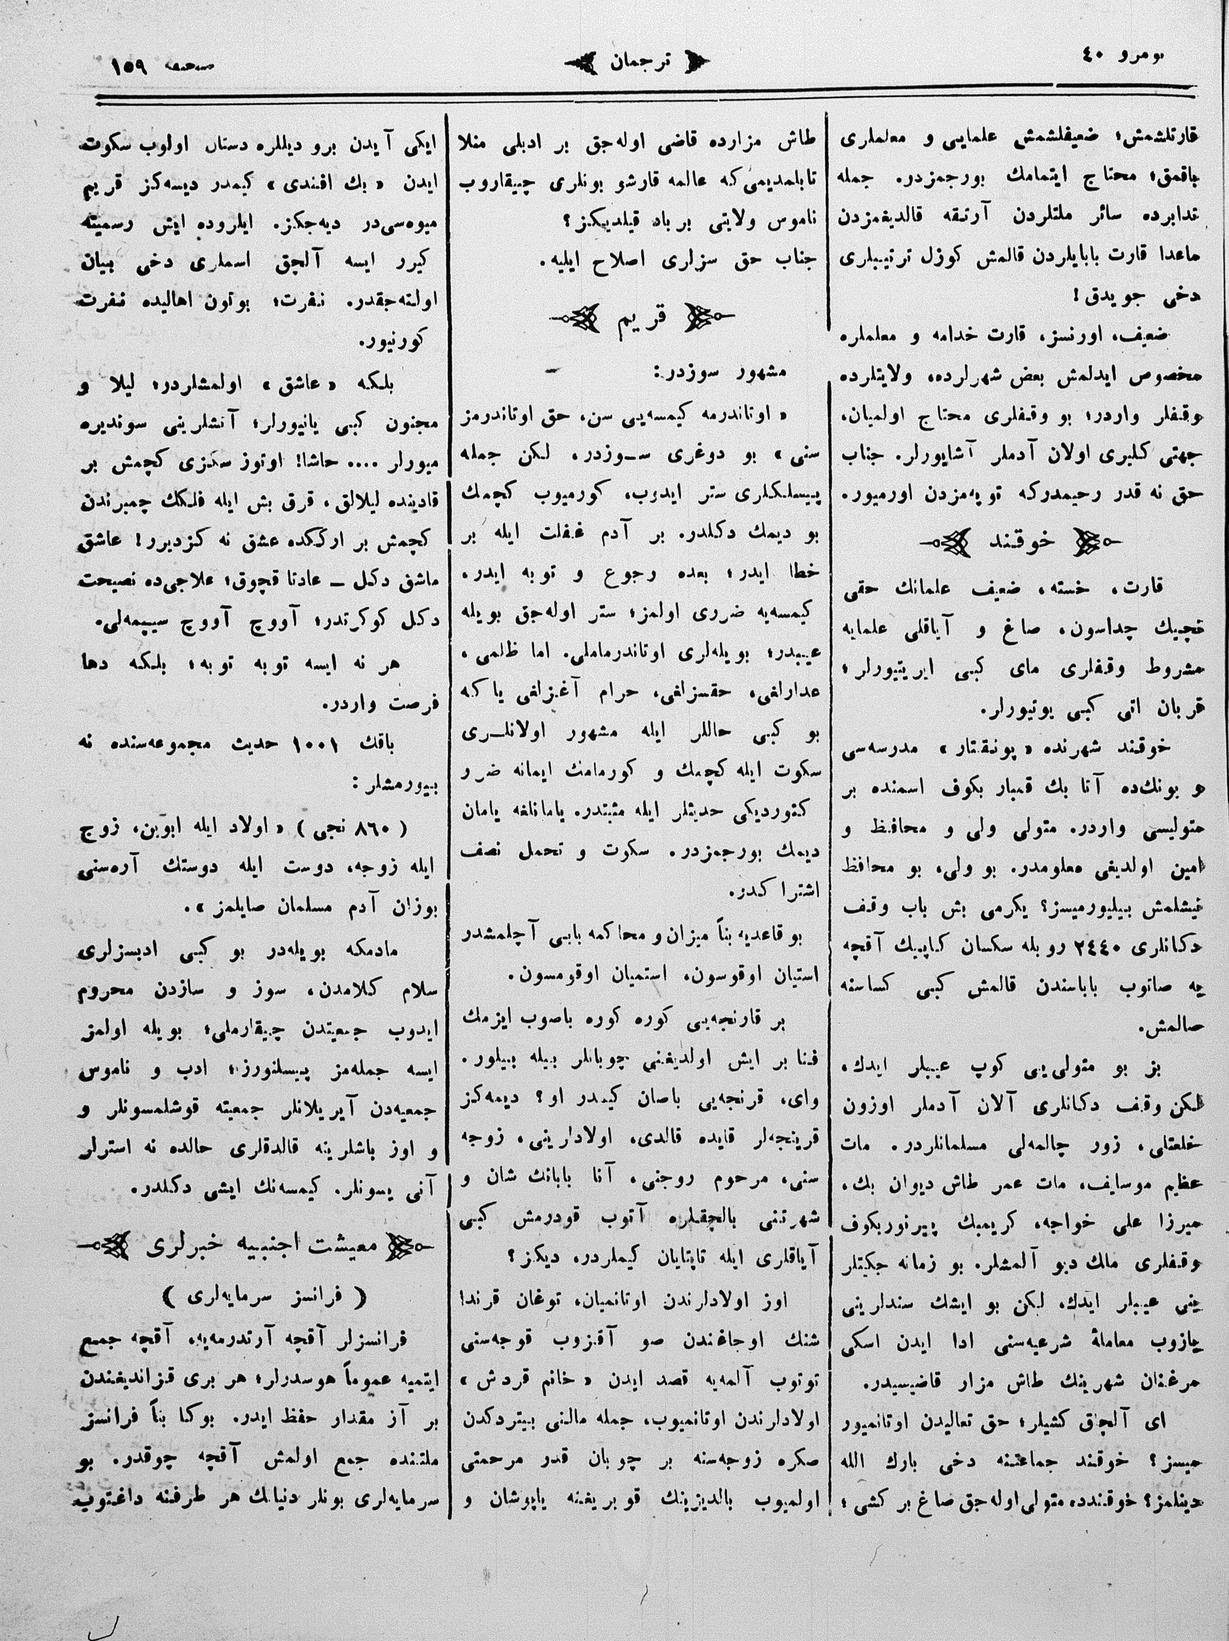 نومرو ٤٠
ترجمان
صحيفه ١٥٩
قارتلشمش؛ ضعيفلشمش علمايى و معلملرى
باقمق؛ محتاج ايتمامك بورجمزدر. جمله
تدابرده سائر ملتلردن آرتقه قالديغمزدن
ماعدا قارت بابايلردن قالمش كوزل ترتيبلرى
دخى جويدق!
ضعيف، اورنسز، قارت خدامه و معلملره
مخصوص ايدلمش بعض شهرلرده، ولايتلرده
وقفلر واردر؛ بو وقفلرى محتاج اولميان،
جهتى كلبرى اولان آدملر آشايورلر. جناب
حق نه قدر رحيمدركه توپه‌مزدن اورميور.
خوقند
قارت، خسته، ضعيف علمانك حقى
قچيك چداسون، صاغ و آياقلى علمايه
مشروط وقفلرى ماى كبى ايريتيورلر؛
قربان اتى كبى يوتيورلر.
خوقند شهرنده «پونقتار» مدرسه‌سى
و بونكده آتا بك قمبار بكوف اسمنده بر
متوليسى واردر. متولى ولى و محافظ و
امين اولديغى معلومدر. بو ولى، بو محافظ
نيشلمش بيليورميسز؟ يكرمى بش باب وقف
دكانلرى ٢٤٤٠ روبله سكسان كاپيك آقچه
يه صاتوب باباسندن قالمش كبى كساسنه
صالمش.
بز بو متولى‌يى كوپ عيبلر ايدك،
لكن وقف دكانلرى آلان آدملر اوزون
خلعتلى، زور چالمه‌لى مسلمانلردر. مات
عظيم موسايف، مات عمر طاش ديوان بك،
ميرزا على خواجه، كريمبك پيرنوربكوف
وقفلرى مالك ديو آلمشلر. بو زمانه جكيتلر
ينى عيبلر ايدك، لكن بو ايشك سندلرينى
يازوب معاملۀ شرعيه‌سنى ادا ايدن اسكى
مرغنان شهرينك طاش مزار قاضيسيدر.
اى آلچاق كشيلر؛ حق تعاليدن اوتانميور
ميسز؟ خوقند جماعتنه دخى بارك الله
دينلمز؟ خوقندده متولى اوله‌جق صاغ بر كشى؛
طاش مزارده قاضى اوله‌جق بر ادبلى منلا
تابلمديمى‌كه عالمه قارشو بونلرى چيقاروب
ناموس ولايتى برباد قيلديكز؟
جناب حق سزلرى اصلاح ايليه.
قريم
مشهور سوزدر:
«اوتاندرمه كيمسه‌يى سن، حق اوتاندرمز
سنى» بو دوغرى سوزدر. لكن جمله
پيسلكلرى ستر ايدوب، كورميوب كچمك
بو ديمك دكلدر. بر آدم غفلت ايله بر
خطا ايدر؛ بعده رجوع و توبه ايدر.
كيمسه‌يه ضررى اولمز؛ ستر اوله‌جق بويله
عيبدر؛ بويله‌لرى اوتاندرماملى. اما ظلمى،
غدارلغى، حقسزلغى، حرام آغزلغى ياكه
بو كبى حاللر ايله مشهور اولانلرى
سكوت ايله كچمك و كورمامك ايمانه ضرر
كتورديكى حديثلر ايله مثبتدر. يامانلغه يامان
ديمك بورجمزدر. سكوت و تحمل نصف
اشتراكدر.
بو قاعديه بناً ميزان و محاكمه بابى آچلمشدر
استيان اوقوسون، استميان اوقومسون.
بر قارنجه‌يى كوره كوره باصوب ايزمك
فنا بر ايش اولديغنى چوبانلر بيله بيلور.
واى، قرنجه‌يى باصان كيمدر او؟ ديمه‌كز
قرينجه‌لر قايده قالدى، اولادلرينى، زوجه
سنى، مرحوم روجنى، آنا بابانك شان و
شهرتنى بالچقلره آتوب قودرمش كبى
آياقلرى ايله تاپتايان كيملردر، ديكز؟
اوز اولادلرندن اوتانميان، توغان قرندا
شنك اوجاغندن صو آقزوب قوجه‌سنى
توتوب آلمه‌يه قصد ايدن «خانم قردش»
اولادلرندن اوتانميوب، جمله مالنى بيتردكدن
صكره زوجه‌سنه بر چوبان قدر مرحمتى
اولميوب بالديزينك قويريغنه ياپوشان و
ايكى آيدن برو ديللره دستان اولوب سكوت
ايدن «بك افندى» كيمدر ديسه‌كز قريم
ميوه‌سى‌در ديه‌جكز. ايلروده ايش رسميته
كيرر ايسه آلچق اسملرى دخى بيان
اولنه‌جقدر. نفرت؛ بوتون اهاليده نفرت
كورنيور.
بلكه «عاشق» اولمشلردر؛ ليلا و
مجنون كبى يانيورلر؛ آتشلرينى سونديره
ميورلر .... حاشا! اوتوز سكزى كچمش بر
قادينده ليلالق، قرق بش ايله فلكك چمبرندن
كچمش بر ارككده عشق نه كزديرر! عاشق
ماشق دكل – عادتا قچوق؛ علاجى‌ده نصيحت
دكل كوكرتدر؛ آووچ آووچ سيپمه‌لى.
هر نه ايسه توبه توبه؛ بلكه دها
فرصت واردر.
باقك ١٠٠١ حديث مجموعه‌سنده نه
بيورمشلر:
(٨٦٠ نجى) «اولاد ايله ابوين، زوج
ايله زوجه، دوست ايله دوستك آره‌سنى
بوزان آدم مسلمان صايلمز».
مادمكه بويله‌در بو كبى ادبسزلرى
سلام كلامدن، سوز و سازدن محروم
ايدوب جمعيتدن چيقارملى؛ بويله اولمز
ايسه جمله‌مز پيسلنورز؛ ادب و ناموس
جمعيه‌دن آيريلانلر جمعيته قوشلمسونلر و
و اوز باشلرينه قالدقلرى حالده نه استرلر
آنى يسونلر. كيمسه‌نك ايشى دكلدر.
معيشت اجنبيه خبرلرى
(فرانسز سرمايه‌لرى)
فرانسزلر آقچه آرتدرمه‌يه، آقچه جمع
ايتميه عموماً هوسدرلر؛ هر برى قزانديغندن
بر آز مقدار حفظ ايدر. بوكا بناً فرانسز
ملتنده جمع اولمش آقچه چوقدر. بو
سرمايه‌لرى بونلر دنيانك هر طرفنه داغتوب